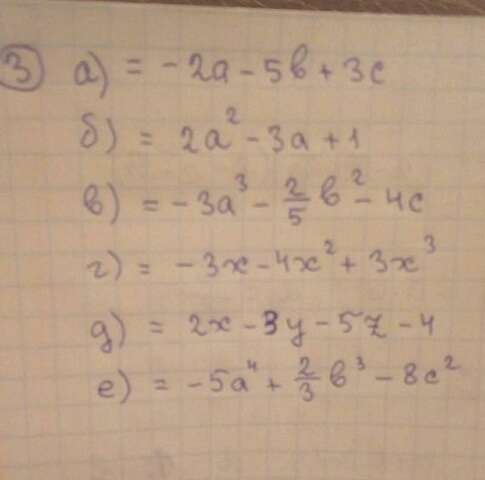 3) а) = -2a - 5b + 3c
б) = 2a² - 3a + 1
в) = -3a³ - 2/5 b² - 4c
г) = -3x - 4x² + 3x³
д) = 2x - 3y - 5z - 4
е) = -5a⁴ + 2/3 b³ - 8c²